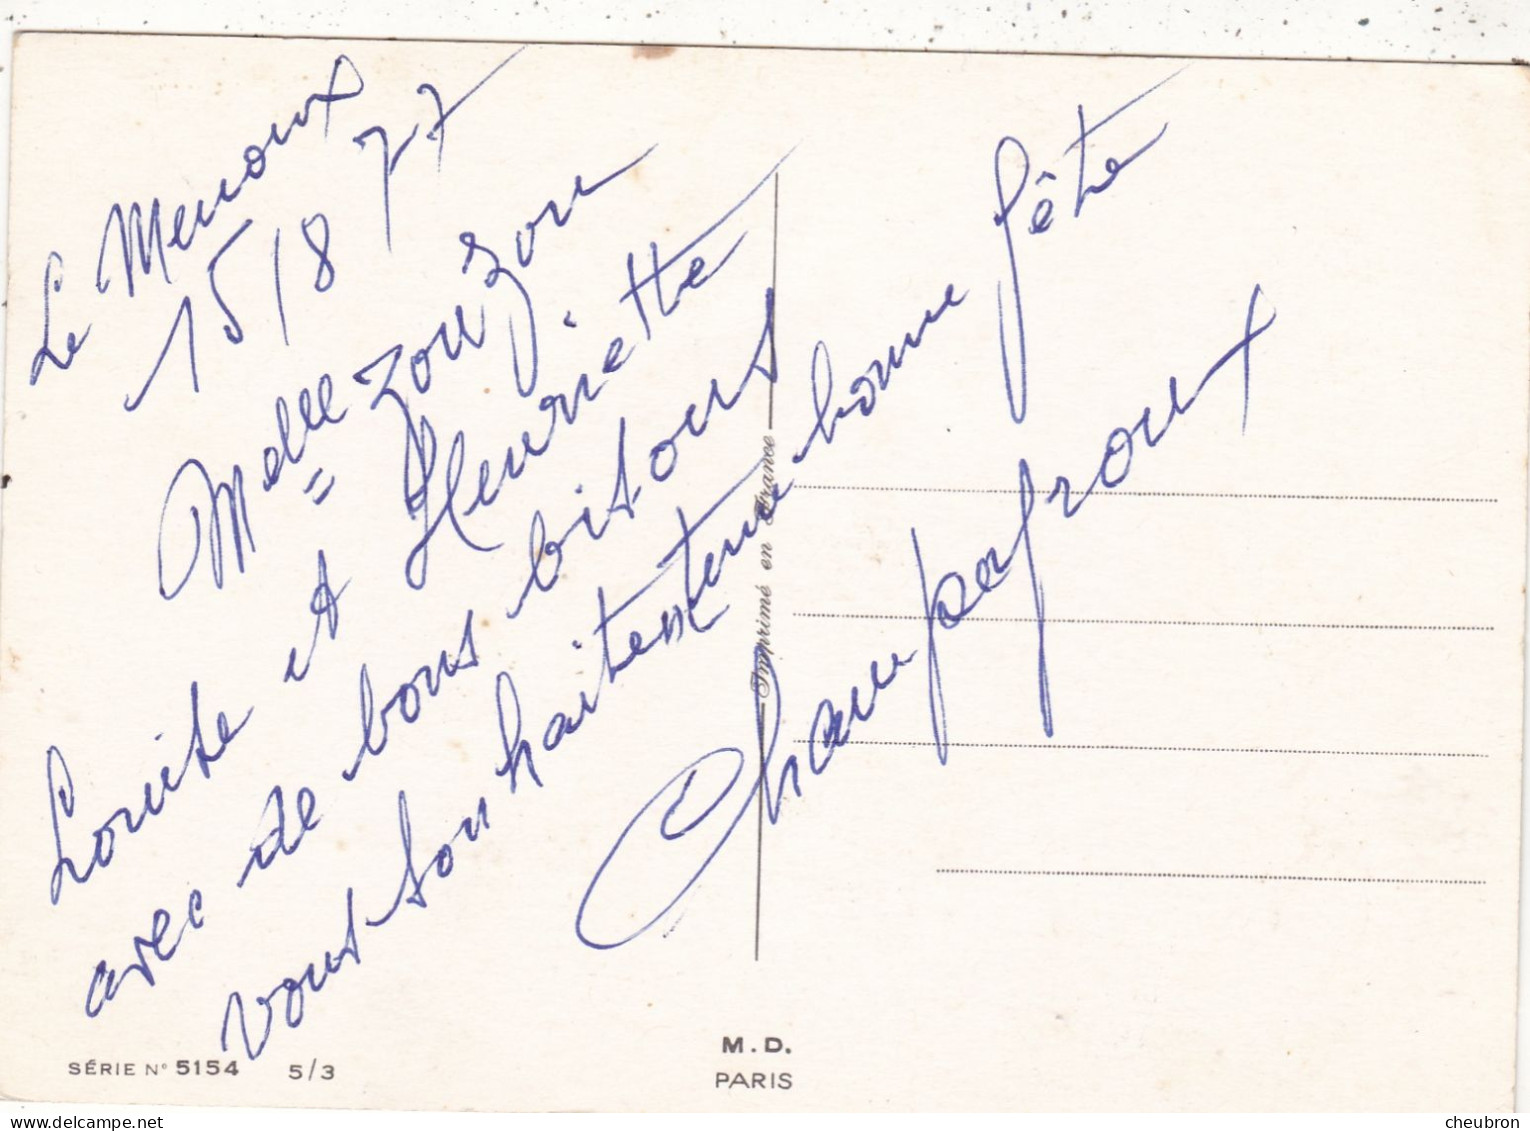 Le Menoux
15/8 77
Melle Zouzou
Louise et Henriette
avec de bons bisous
vous souhaitent une bonne fête
Champafroux
Imprimé en France
SÉRIE N° 5154 5/3
M.D.
PARIS
cheubron